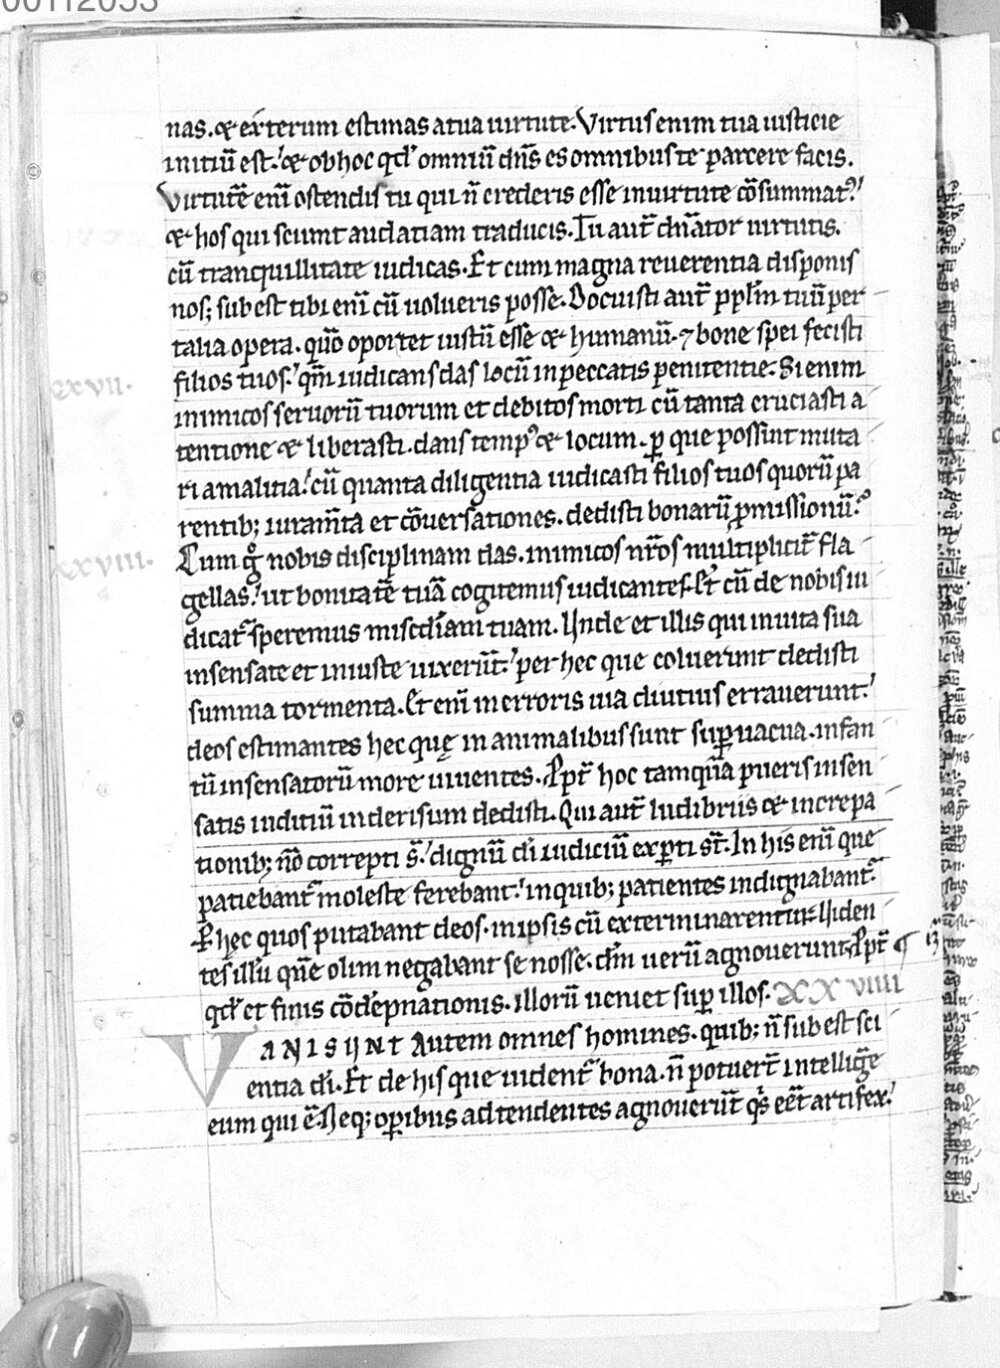 00112053
nas. & exterum estimas a tua uirtute. Virtus enim tua iusticie
initiū est. & ob hoc qđ omniū dn̄s es omnibus te parcere facis.
Virtutē enī ostendis tu qui n̄ crederis esse in uirtute cōsummat᷒.
& hos qui sciunt audatiam traducis. Tu aut̄ dn̄ator uirtutis.
cū tranquillitate iudicas. Et cum magna reuerentia disponis
nos; subest tibi enī cū uolueris posse. Docuisti aut̄ pplm̄ tuū per
talia opera. qūo oportet iustū esse & humanū. ⁊ bone spei fecisti
filios tuos. qm̄ iudicans das locū in peccatis penitentie. Si enim
inimicos seruorū tuorum et debitos morti cū tanta cruciasti a
tentione & liberasti. dans temp᷒ & locum. ꝑ que possint muta
xxvii.
ri a malitia. cū quanta diligentia iudicasti filios tuos quorū pa
rentib; iuram̄ta et cōuersationes. dedisti bonarū ꝓmissionū.
Cum gͦ nobis disciplinam das. inimicos nr̄os multiplicit̄ fla
xxviii.
gellas. ut bonitatē tuā cogitemus iudicantes. Et cū de nobis iu
dicat᷑ speremus misc̄diam tuam. Unde et illis qui in uita sua
insensate et iniuste uixerūt. per hec que coluerunt dedisti
summa tormenta. Et enī in erroris uia diutius errauerunt.
deos estimantes hec quę in animalibus sunt suꝑuacua. infan
tū insensatorū more uiuentes. Ppt̄ hoc tamquā pueris insen
satis iuditiū in derisum dedisti. Qui aut̄ ludibriis & increpa
tionib; nō correpti s̄. dignū dī iudiciū exꝑti st̄. In his enī que
patiebant᷑ moleste ferebant. in quib; patientes indignabant᷑.
P̱ hęc quos putabant deos. in ipsis cū exterminarentur. Uiden
tes illū quē olim negabant se nosse. dm̄ uerū agnouerunt. Ppt̄
qđ et finis cōdēpnationis. illorū ueniet suꝑ illos. XXVIIII
VANISUNT Autem omnes homines. quib; n̄ subest sci
entia dī. Et de his que uident᷑ bona. n̄ potuert̄ intelligēe
eum qui ē. Neq; oꝑibus adtendentes agnouerūt qͥs eēt artifex.